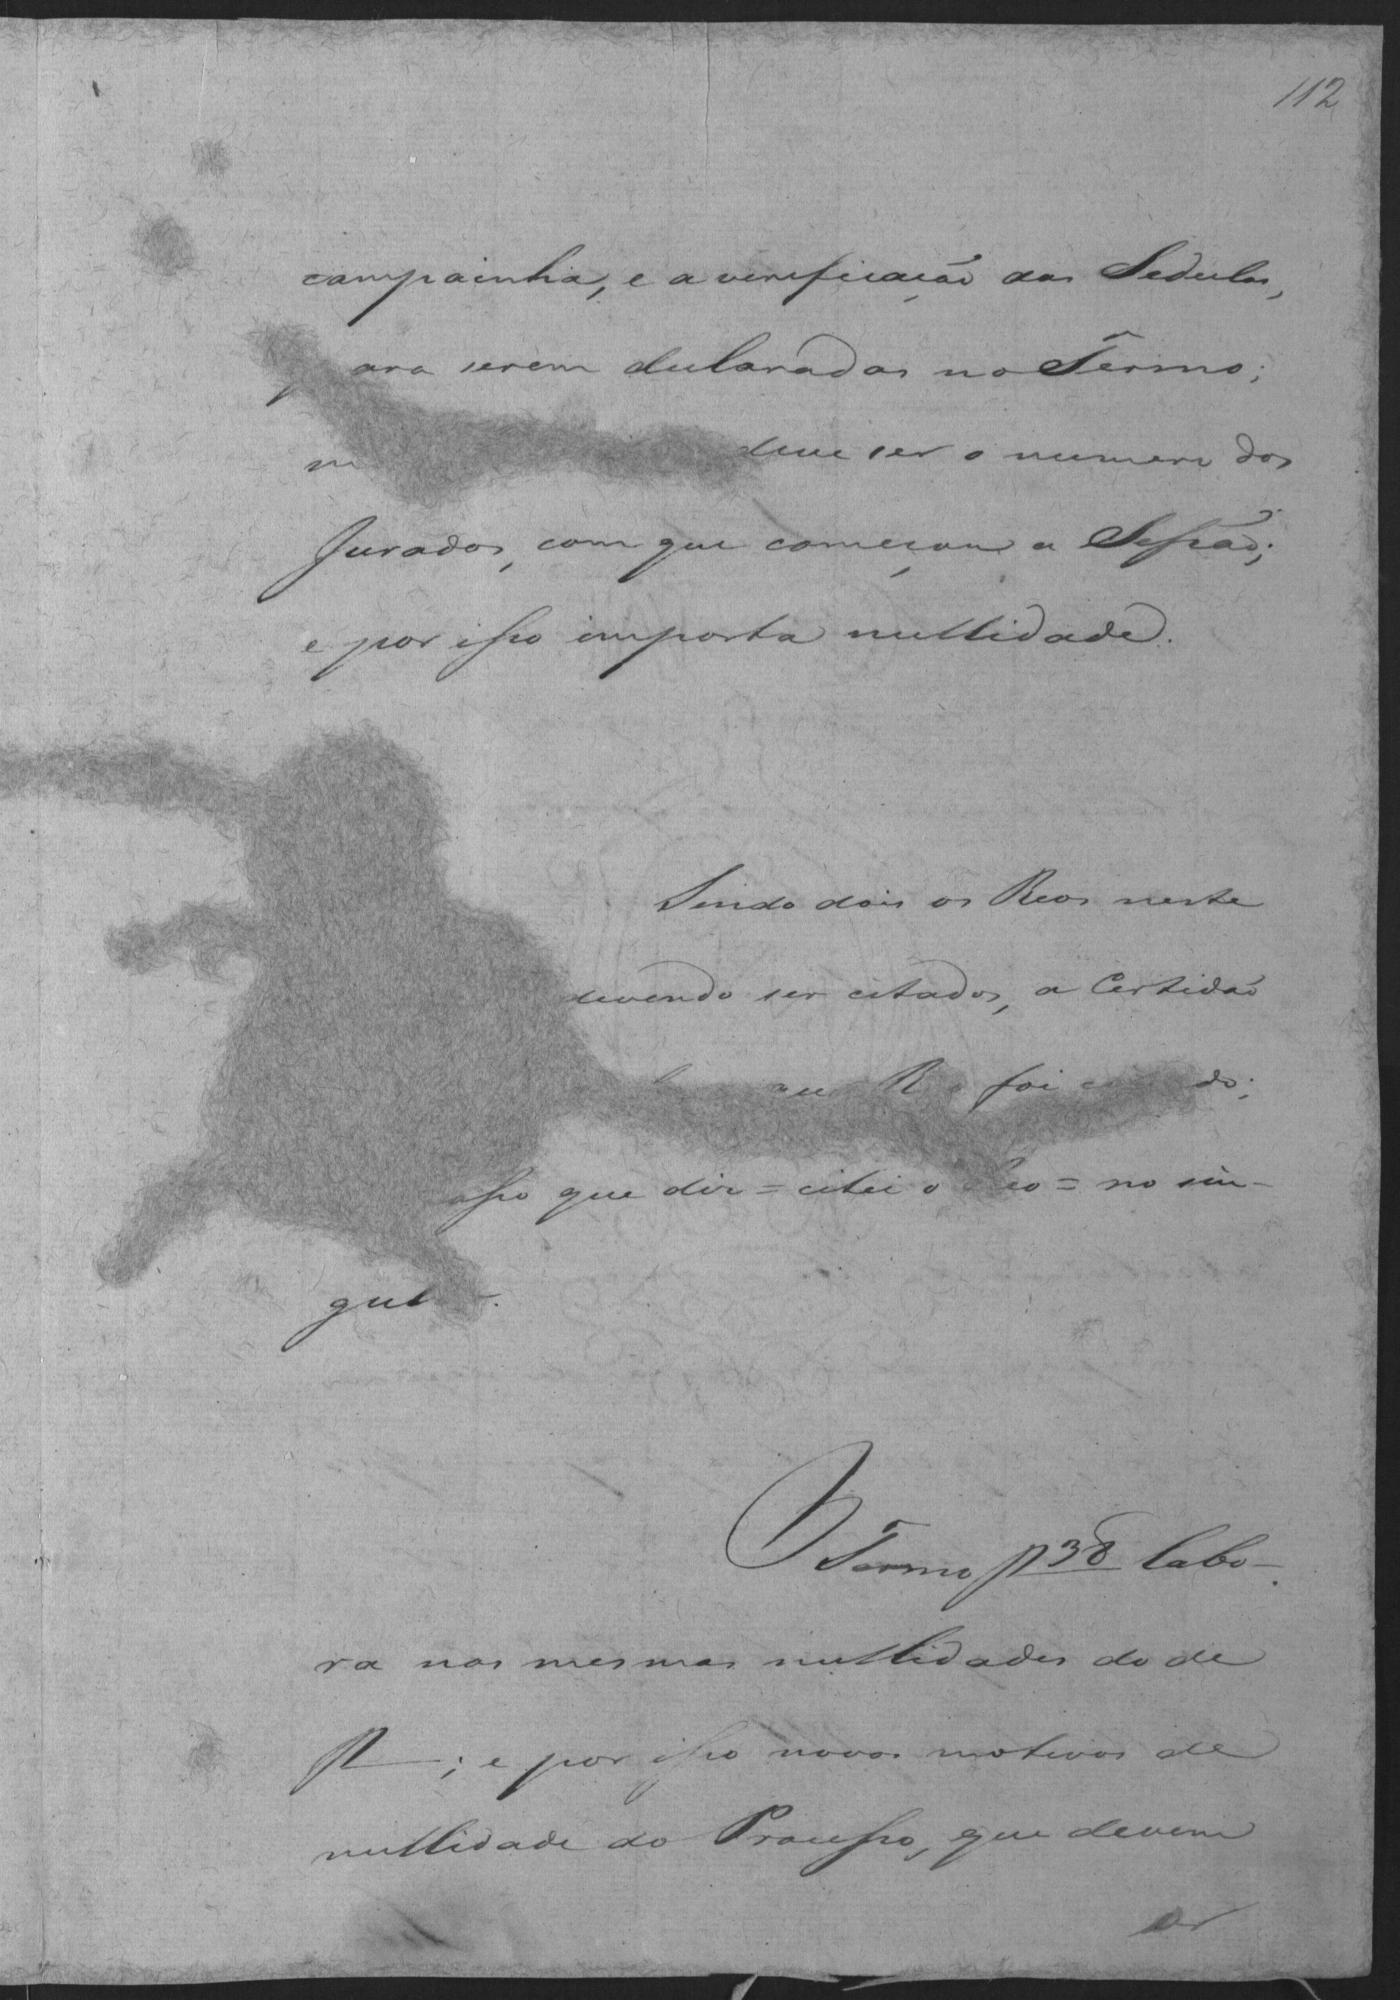 112
campainha, e a verificação das Sedulas,
para serem declaradas no Termo;
deve ser o numero dos
Jurados, com que começou a Sessão;
e por isso importa nullidade.
Sendo dois os Reos neste
devendo ser citados, a Certidão
foi do;
que diz = citei o Reo = no sin-
gul
O Termo f 38 labo-
ra nas mesmas nullidades do de
f ; e por isso novos motivos de
nullidade do Processo, que devem